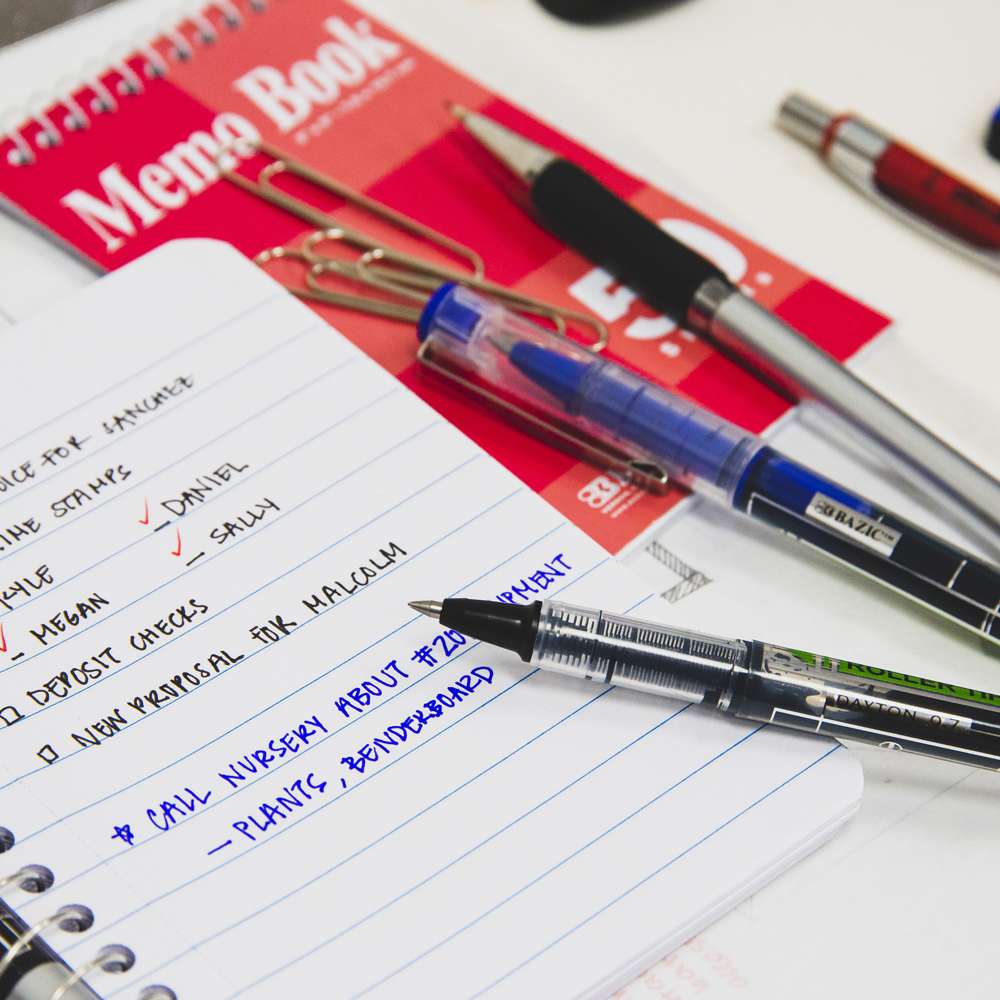 Memo Book
50
BAZIC
ROLLER TIP
DAYTON 0.7
FOR SANCHEZ
STAMPS
DANIEL
KYLE
SALLY
- MEGAN
DEPOSIT CHECKS
NEW PROPOSAL FOR MALCOLM
CALL NURSERY ABOUT #20
- PLANTS, BENDERBOARD